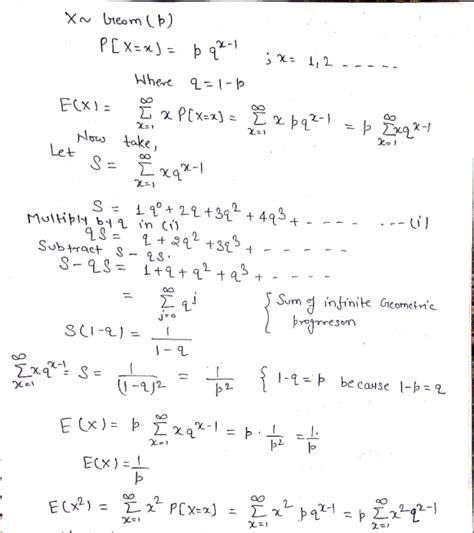 X ~ Geom(p)
P[X=x] = p q^{x-1} ; x = 1, 2 - - - - -
Where q = 1-p
E(X) = \sum_{x=1}^{∞} x P[X=x] = \sum_{x=1}^{∞} x p q^{x-1} = p \sum_{x=1}^{∞} x q^{x-1}
Now take,
Let S = \sum_{x=1}^{∞} x q^{x-1}
S = 1 q^0 + 2q + 3q^2 + 4q^3 + - - - - - - - - (i)
Multiply by q in (i)
qS = q + 2q^2 + 3q^3 + - - - - - -
Subtract S - qS.
S - qS = 1 + q + q^2 + q^3 + - - - - -
= \sum_{j=0}^{∞} q^j { Sum of infinite Geometric
progreeson
S(1-q) = \frac{1}{1-q}
\sum_{x=1}^{∞} x q^{x-1} = S = \frac{1}{(1-q)^2} = \frac{1}{p^2} { 1-q = p because 1-p = q
E(X) = p \sum_{x=1}^{∞} x q^{x-1} = p · \frac{1}{p^2} = \frac{1}{p}
E(X) = \frac{1}{p}
E(X^2) = \sum_{x=1}^{∞} x^2 P[X=x] = \sum_{x=1}^{∞} x^2 p q^{x-1} = p \sum_{x=1}^{∞} x^2 q^{x-1}